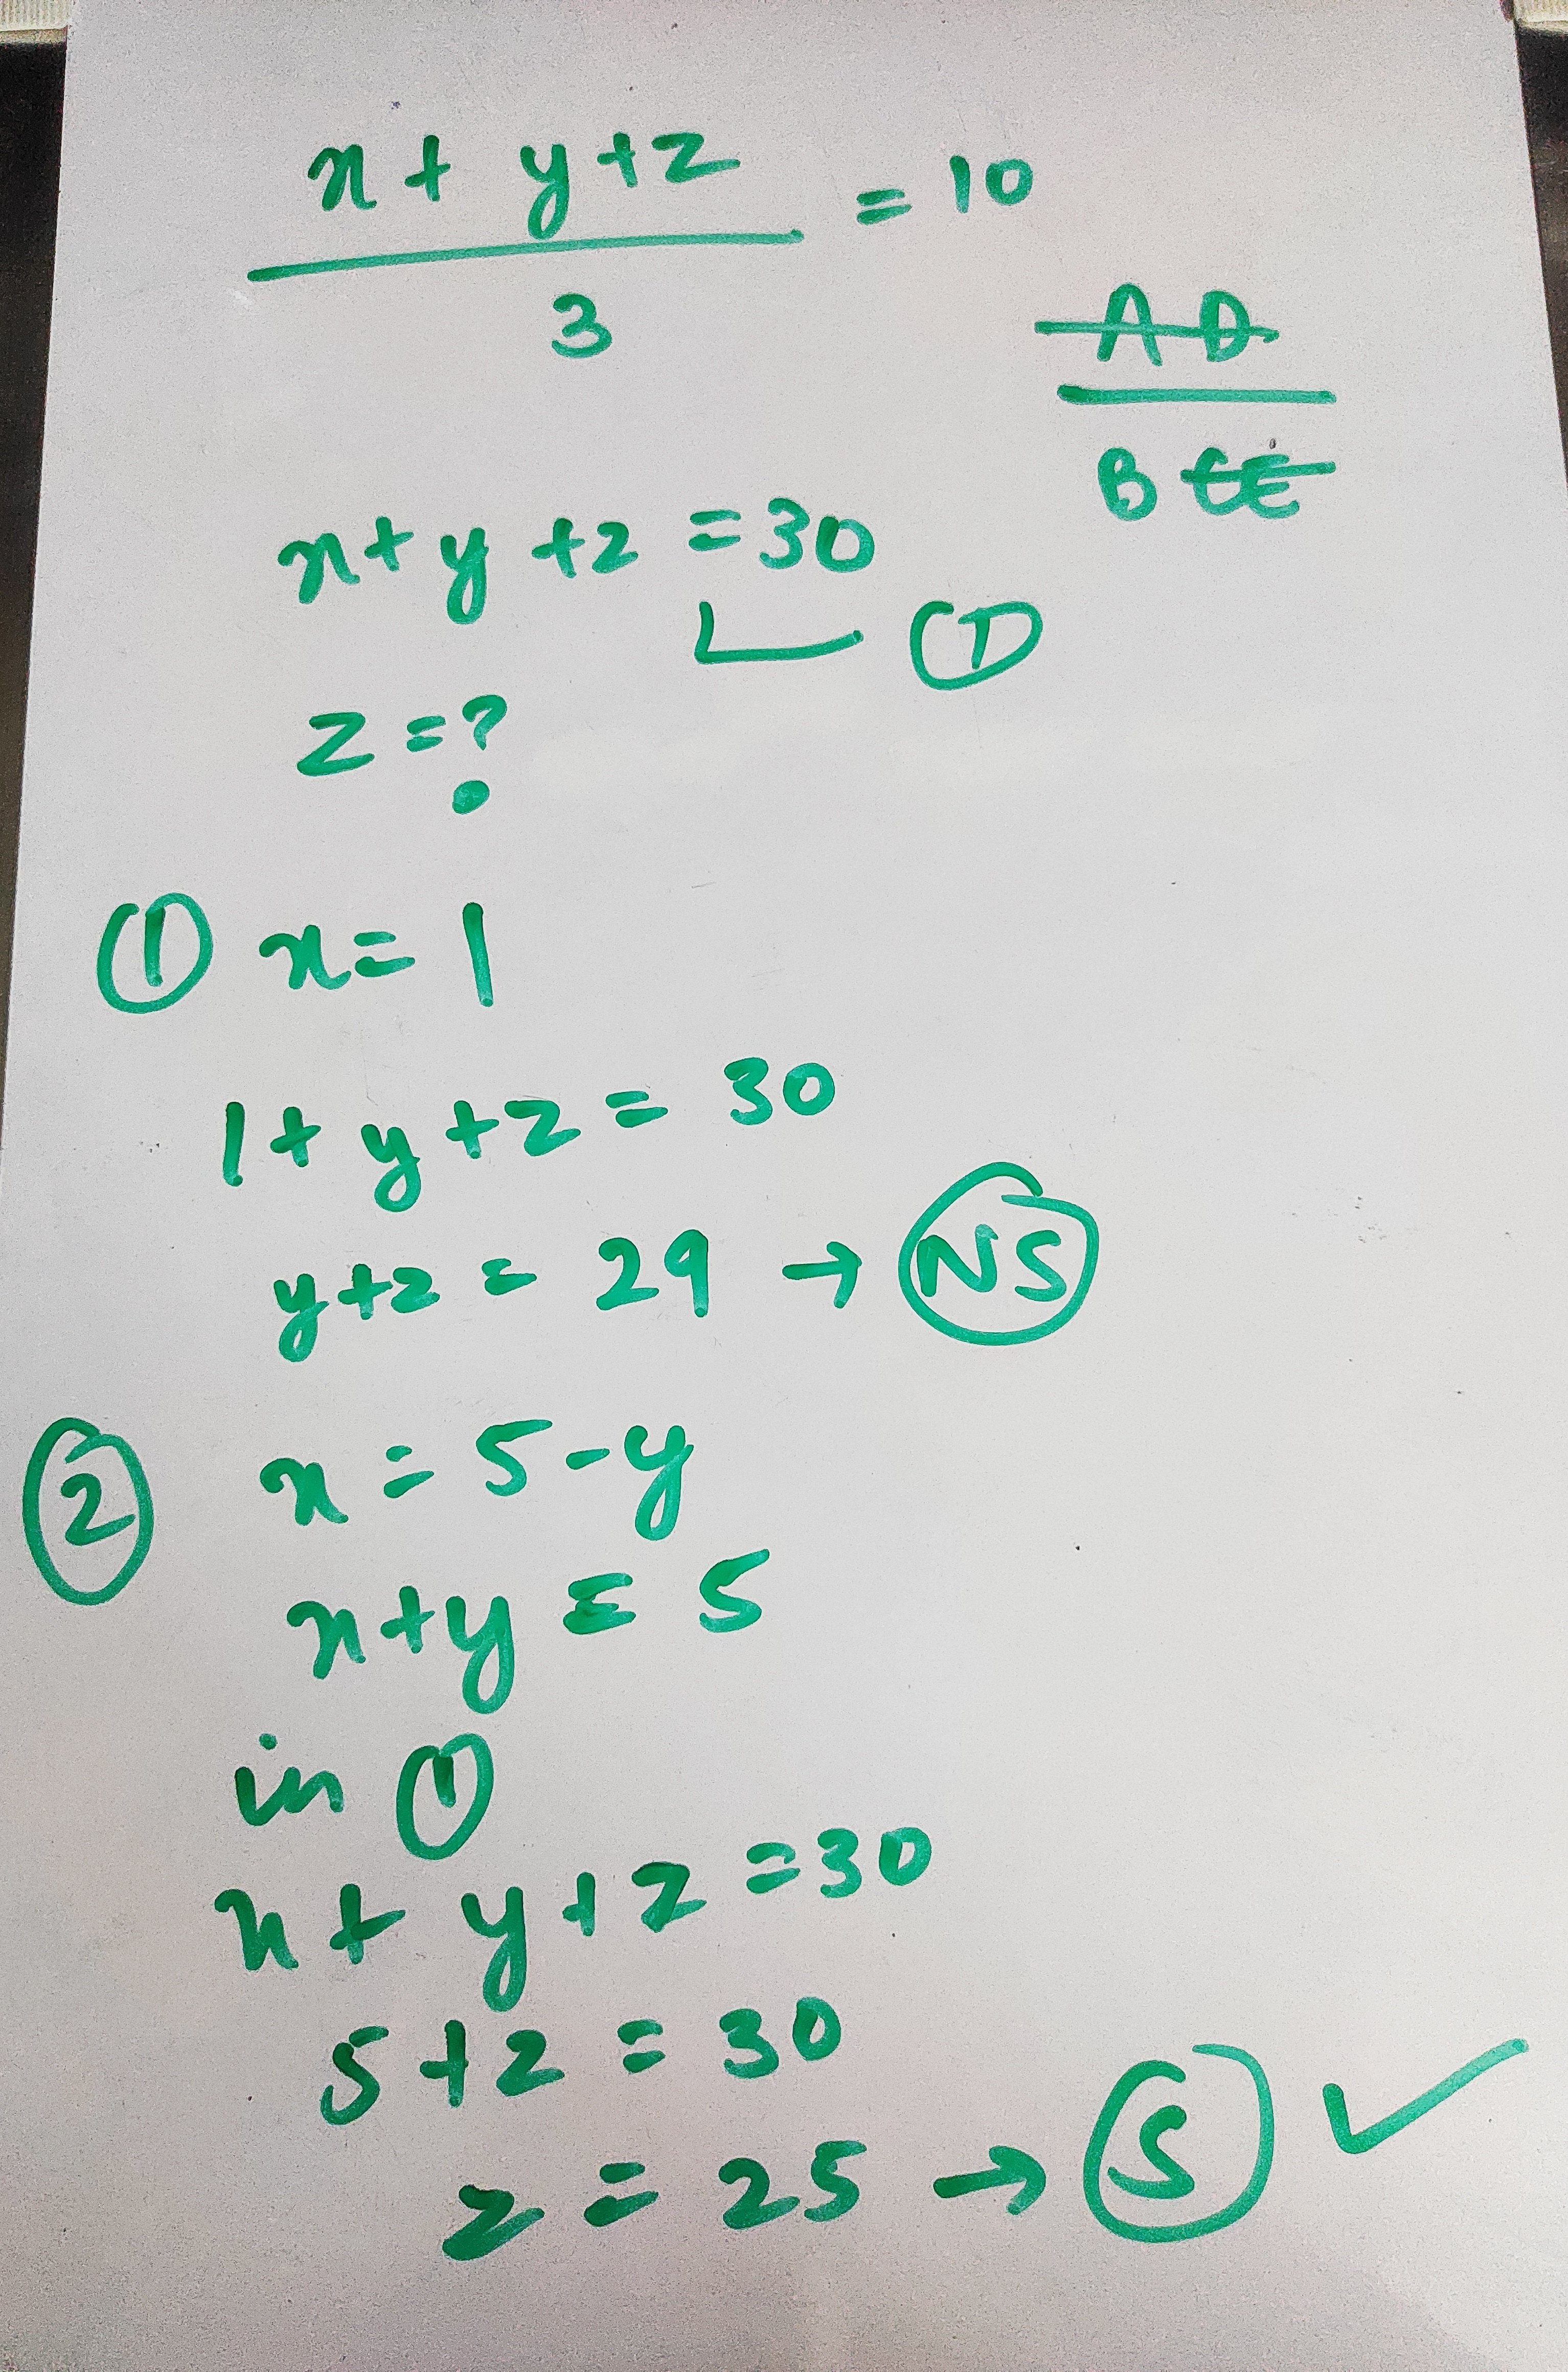 x + y + z = 10
3
A D
B C E
x + y + z = 30
①
z = ?
① x = 1
1 + y + z = 30
y + z = 29 → NS
② x = 5 - y
x + y = 5
in ①
x + y + z = 30
5 + z = 30
z = 25 → S ✓